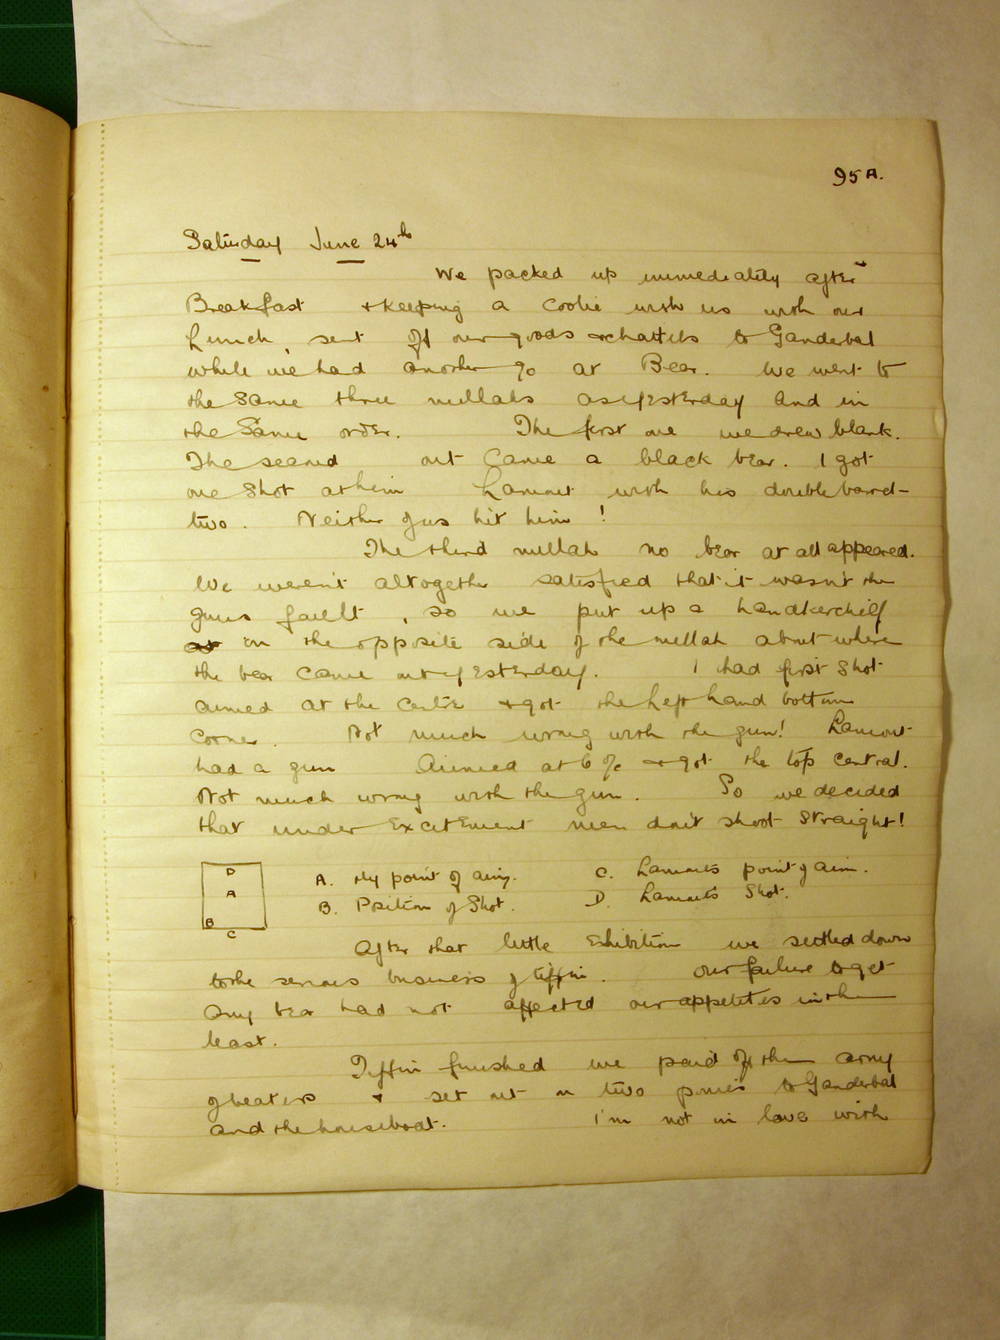 95A.
Saturday June 24th
We packed up immediately after
Breakfast & keeping a coolie with us with our
lunch, sent off our goods & chattels to Ganderbal
while we had another go at Bear. We went to
the same three nullahs as yesterday and in
the same order. The first one we drew blank.
The second out came a black bear. I got
one shot at him Lamont with his double barrel-
two. Neither of us hit him!
The third nullah no bear at all appeared.
We weren't altogether satisfied that it wasn't the
guns fault, so we put up a handkercheif
on the opposite side of the nullah about where
the bear came out yesterday. I had first shot
aimed at the centre & got the left hand bottom
corner. Not much wrong with the gun! Lamont
had a gun Aimed at 6 o/c & got the top central.
Not much wrong with the gun. So we decided
that under excitement men don't shoot straight!
D
A
B
C
A. My point of aim. C. Lamont's point of aim.
B. Position of Shot. D. Lamont's Shot.
After that little exhibition we settled down
to the serious business of tiffin. Our failure to get
any bear had not affected our appetites in the
least.
Tiffin finished we paid off the army
of beaters & set out on two ponies to Ganderbal
and the houseboat. I'm not in love with